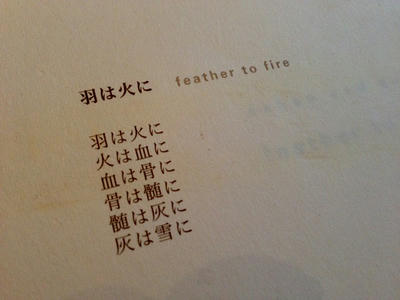 羽は火に feather to fire
羽は火に
火は血に
血は骨に
骨は髄に
髄は灰に
灰は雪に